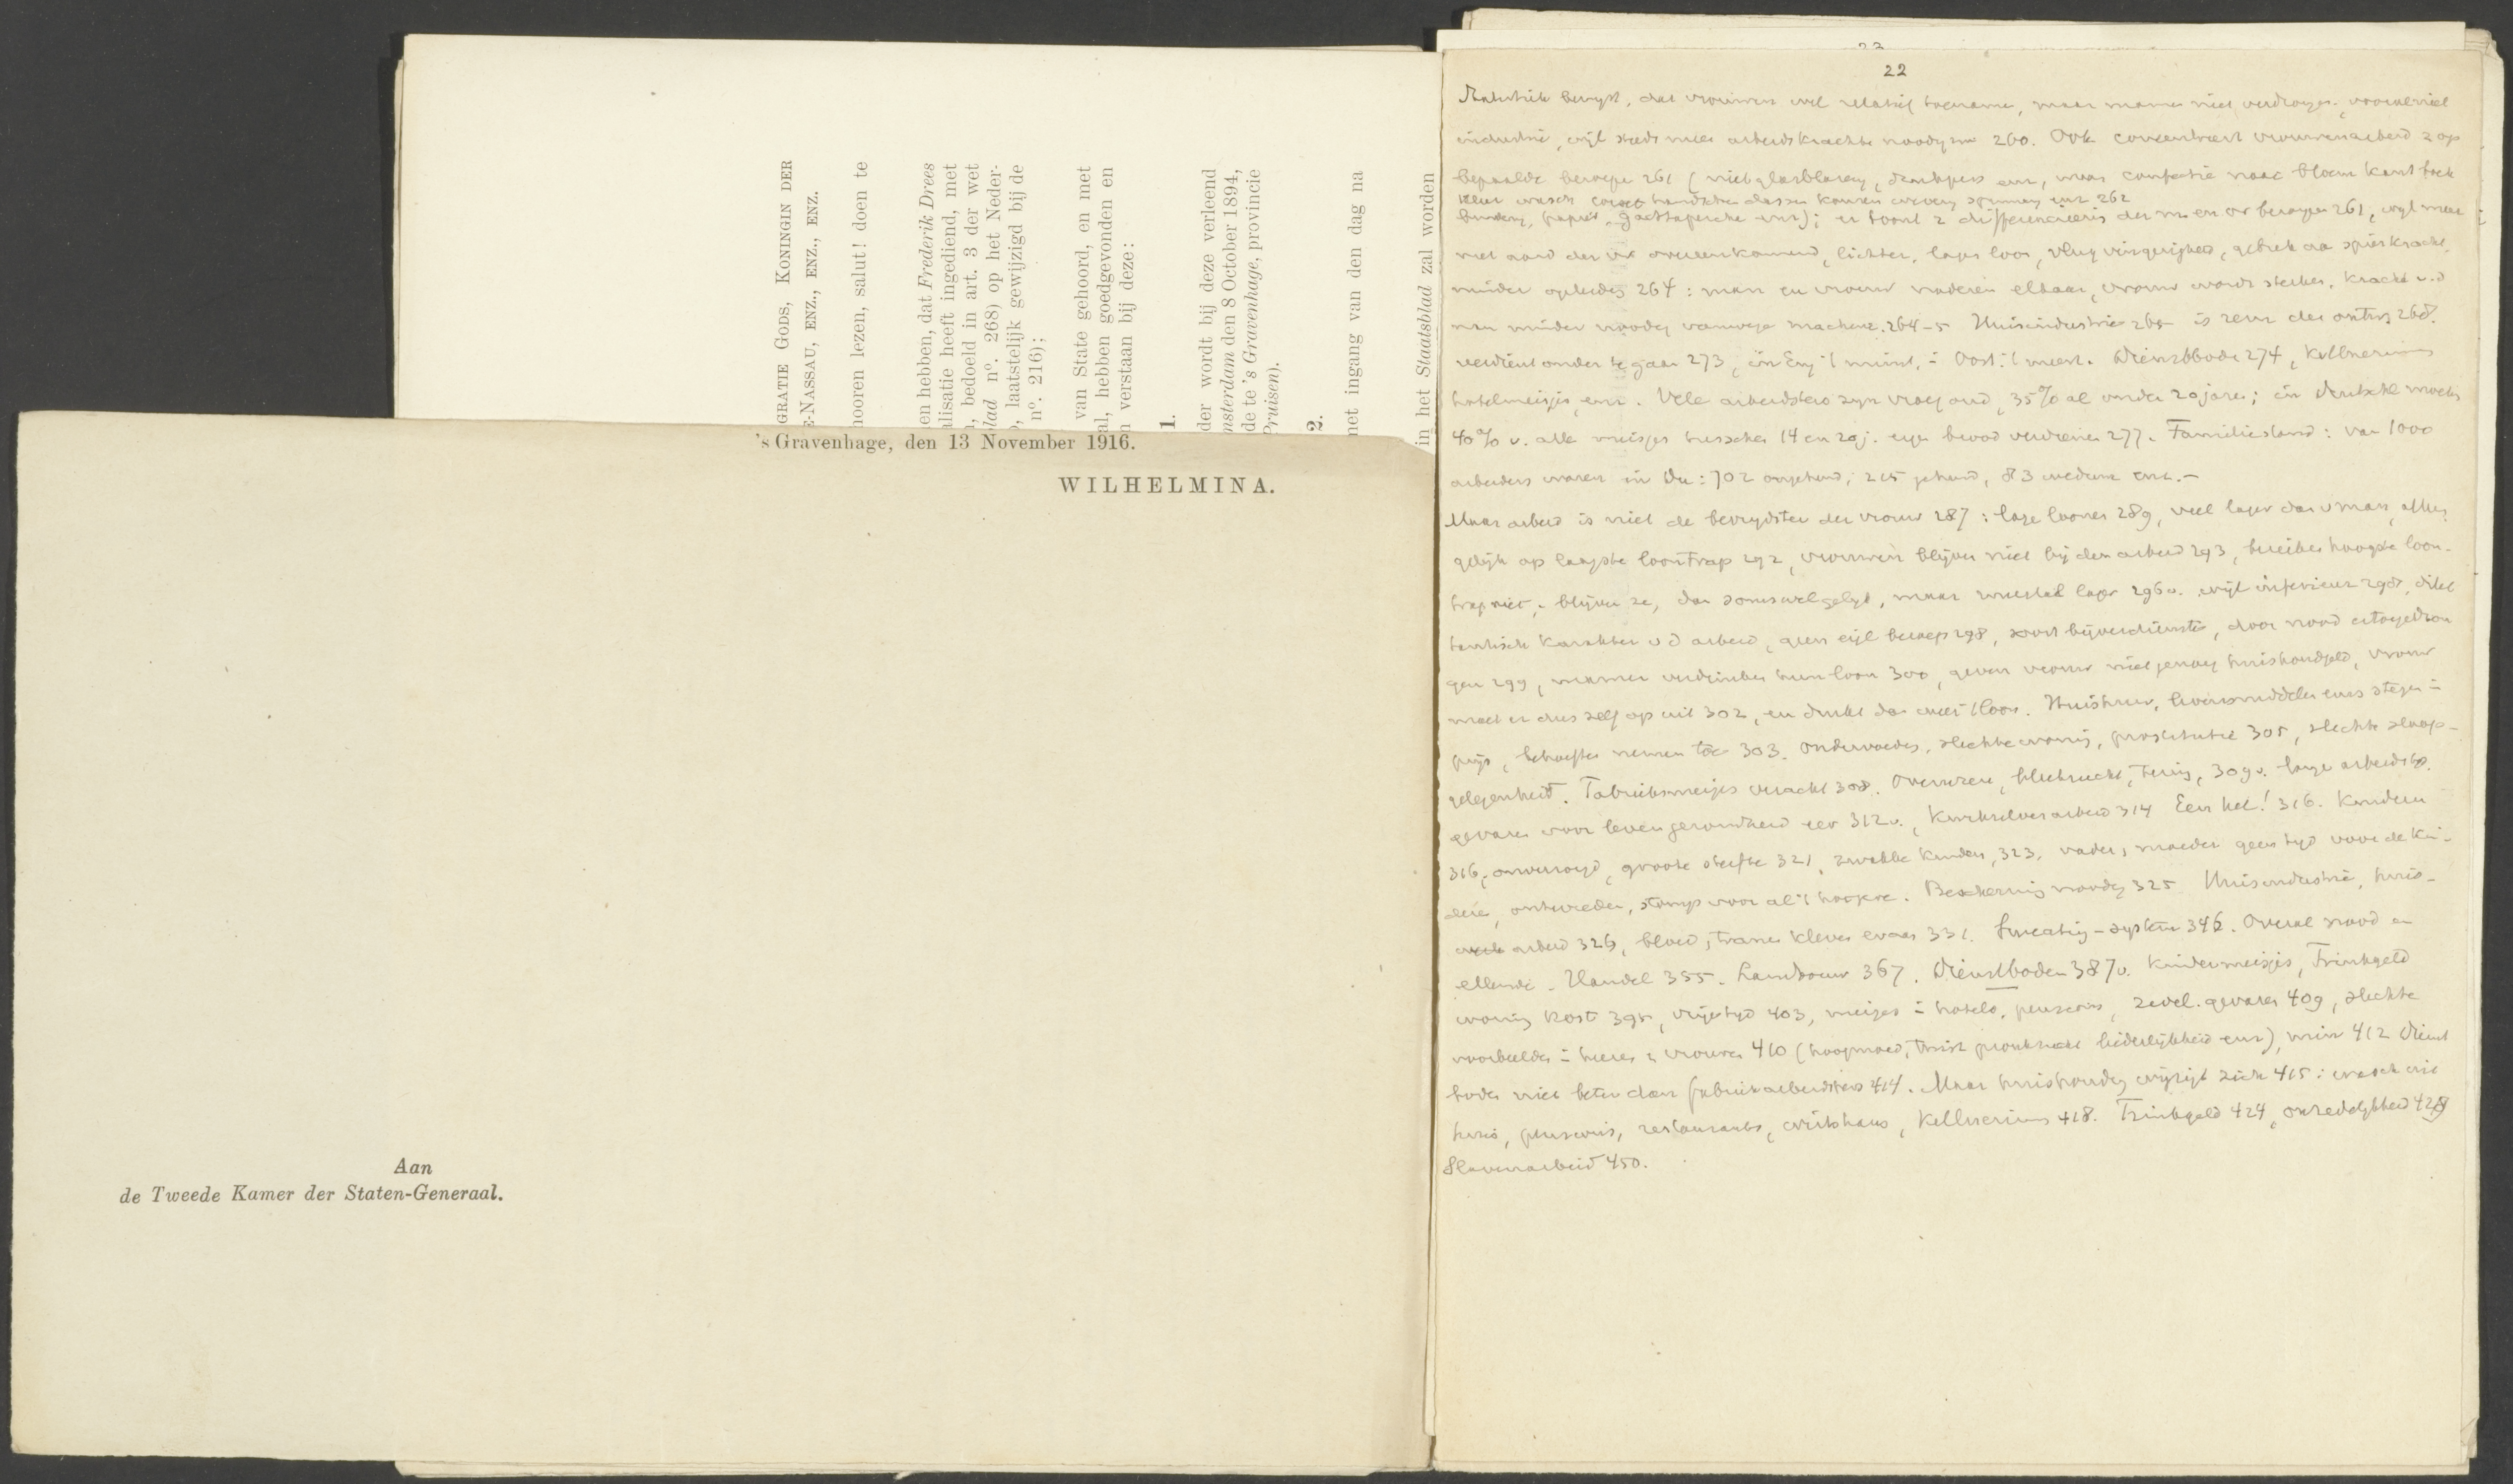 GRATIE GODS, KONINGIN DER
E-NASSAU, ENZ., ENZ., ENZ.
hooren lezen, salut! doen te
en hebben, dat Frederik Drees
alisatie heeft ingediend, met
, bedoeld in art. 3 der wet
blad nº. 268) op het Neder-
, laatstelijk gewijzigd bij de
nº. 216);
van State gehoord, en met
al, hebben goedgevonden en
n verstaan bij deze:
1.
der wordt bij deze verleend
msterdam den 8 October 1894,
de te 's Gravenhage, provincie
Pruisen).
2.
met ingang van den dag na
in het Staatsblad zal worden
's Gravenhage, den 13 November 1916.
WILHELMINA.
Aan
de Tweede Kamer der Staten-Generaal.
23
22
dat vrouwen wel relatief toename, maar mannen niet
industrie, wijl steeds meer arbeidskrachten noodig zijn 260. Ook concentreert vrouwenarbeid z op
bepaalde beroepen 261 (niet glasblazerij, maar confectie
262
261, wijl meer
met aard der vr overeenkomend, lichter, lager loon, vlug vingerigheid, gebrek aa spierkracht,
minder opleidg 264: man en vrouw naderen elkaar, vrouw wordt sterker, kracht v.d
man minder noodig vanwege machine. 264-5 Huisindustrie 265 is 268.
verdient onder te gaan 273, Dienstbode 274, Kellnerinnen
hotelmeisjes enz. Vele arbeidsters zijn vroeg oud, 35% al onder 20 jaren; in Deutschl moeten
40% v. alle meisjes tusschen 14 en 20 j. eigen brood verdienen 277. Familiestand: van 1000
arbeiders waren in Du: 702 ongehuwd, 215 gehuwd, 83 weduw enz. -
Maar arbeid is niet de bevrijdster der vrouw 287: lage loonen 289, veel lager dan v man,
gelijk op laagste loontrap 292, vrouwen blijven niet bij den arbeid 293, bereiken hoogste loon-
trap niet; blijven ze, dan soms wel gelijk, maar meestal lager 296v. wijl inferieur 298, dilet
tantisch karakter v d arbeid, geen eigl beroep 298, soort bijverdienste, door nood
gen 299, mannen verdrinken hun loon 300, geven vrouw niet genoeg huishoudgeld, vrouw
moet er dus zelf op uit 302, en drukt dan weer 't loon. Huishuur, levensmiddelen enz stegen i
prijs, behoeften nemen toe 303. Ondervoedg, slechte woning, prostitutie 305, slechte slaap-
gelegenheid. Fabrieksmeisjes veracht 308. Overuren, bleekzucht, tering, 309v. lange arbeidstijd.
gevaren voor leven gezondheid eer 312v., Kwikzilverarbeid 314 Een hel! 316. Kinderen
316, onverzorgd, groote sterfte 321, zwakke kinderen, 323, vader, moeder geen tijd voor de kin-
deren, ontevreden, stomp voor al 't hoogere. Bescherming noodig 325 Huisindustrie, huis-
arbeid 326, bloed, tranen kleven eraan 331. Sweating-system 346. Overal nood en
ellende. Handel 355. Landbouw 367. Dienstboden 387v. Kindermeisjes, Trinkgeld
woning kost 395, vrije tijd 403, meisjes i hotels, pensions, zedel. gevaren 409, slechte
voorbeelden i heeren & vrouwen 410 (hoogmoed, pronkzucht liederlijkheid enz), 412 Dienst
boden niet beter dan fabrieksarbeidsters 414. Maar huishoudg wijzigt zich 415: wasch uit
huis, pensions, restaurants, wirtshaus, Kellnerinnen 418. Trinkgeld 424, onzedelijkheid 428
Slavenarbeid 450.